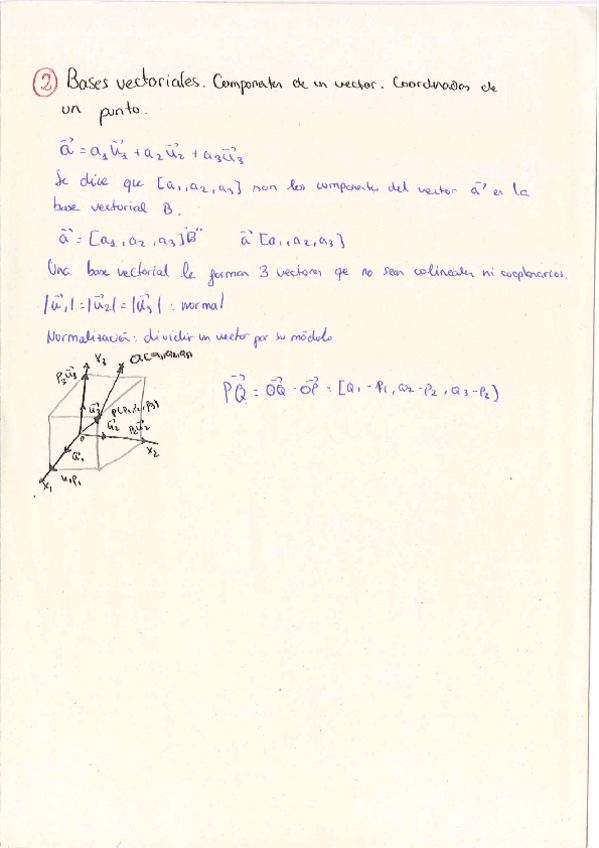 ② Bases vectoriales. Componentes de un vector. Coordenadas de
un punto.
a⃗ = a₁u⃗₁ + a₂u⃗₂ + a₃u⃗₃
Se dice que [a₁, a₂, a₃] son las componentes del vector a⃗ en la
base vectorial B.
a⃗ = [a₁, a₂, a₃]"B" a⃗ [a₁, a₂, a₃]
Una base vectorial la forman 3 vectores que no sean colineales ni cooplanarios.
|u⃗₁| = |u⃗₂| = |u⃗₃| : normal
Normalización: dividir un vector por su módulo
X₃
P₃u⃗₃
u⃗₃ P(P₁, P₂, P₃)
u⃗₂ P₂u⃗₂
X₂
u⃗₁
X₁ u₁P₁
PQ⃗ = OQ⃗ - OP⃗ = [Q₁ - P₁, Q₂ - P₂, Q₃ - P₃]